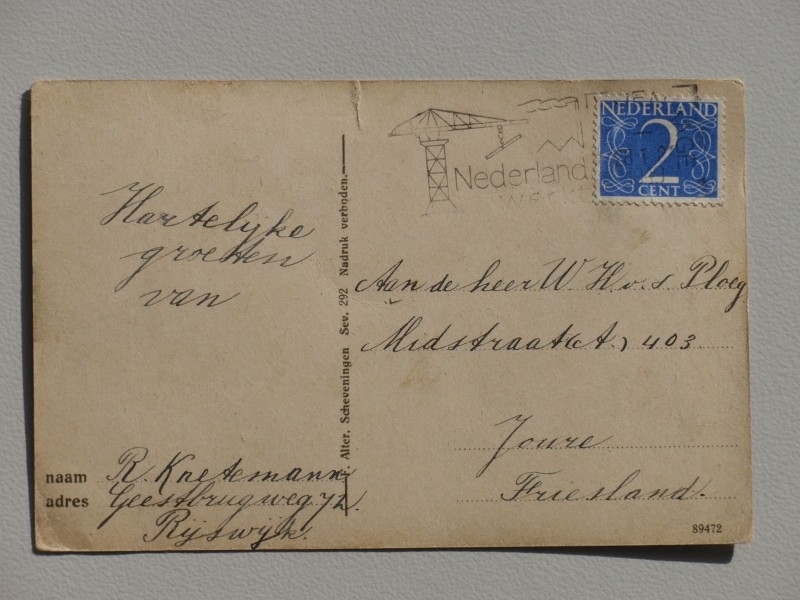 Nederland
NEDERLAND
2
CENT
Hartelijke
groeten
van
Aan de heer W. H. v. d Ploeg
Midstraat (A.) 403
Joure
Friesland.
naam R. Knetemann
adres Geestbrugweg 72
Rijswijk.
Alter, Scheveningen Sev. 292 Nadruk verboden.
89472